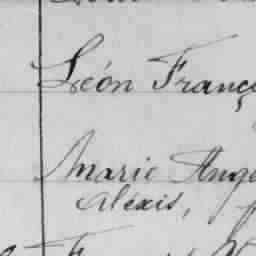 Léon Franç
Marie Ange
Aléxis,